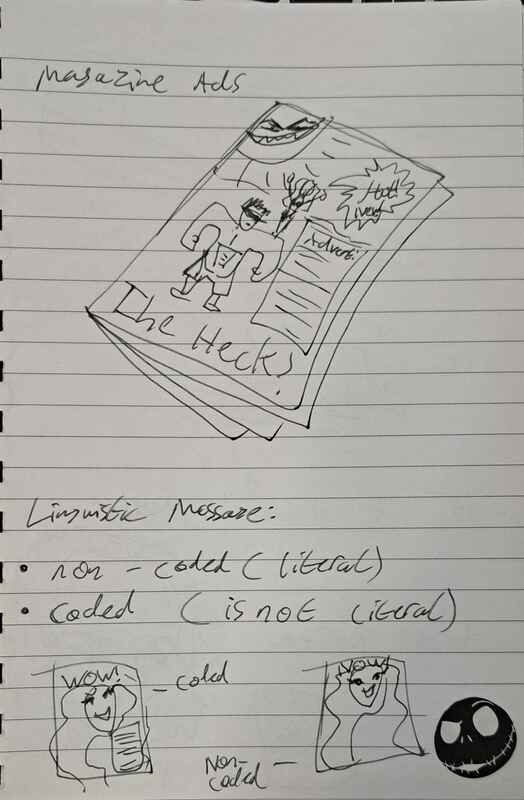 Magazine Ads
Hot!
Adverti
The Heck!
Linguistic Message:
• non-coded (literal)
• coded (is not literal)
WOW!
coded
WOW!
Non-
coded